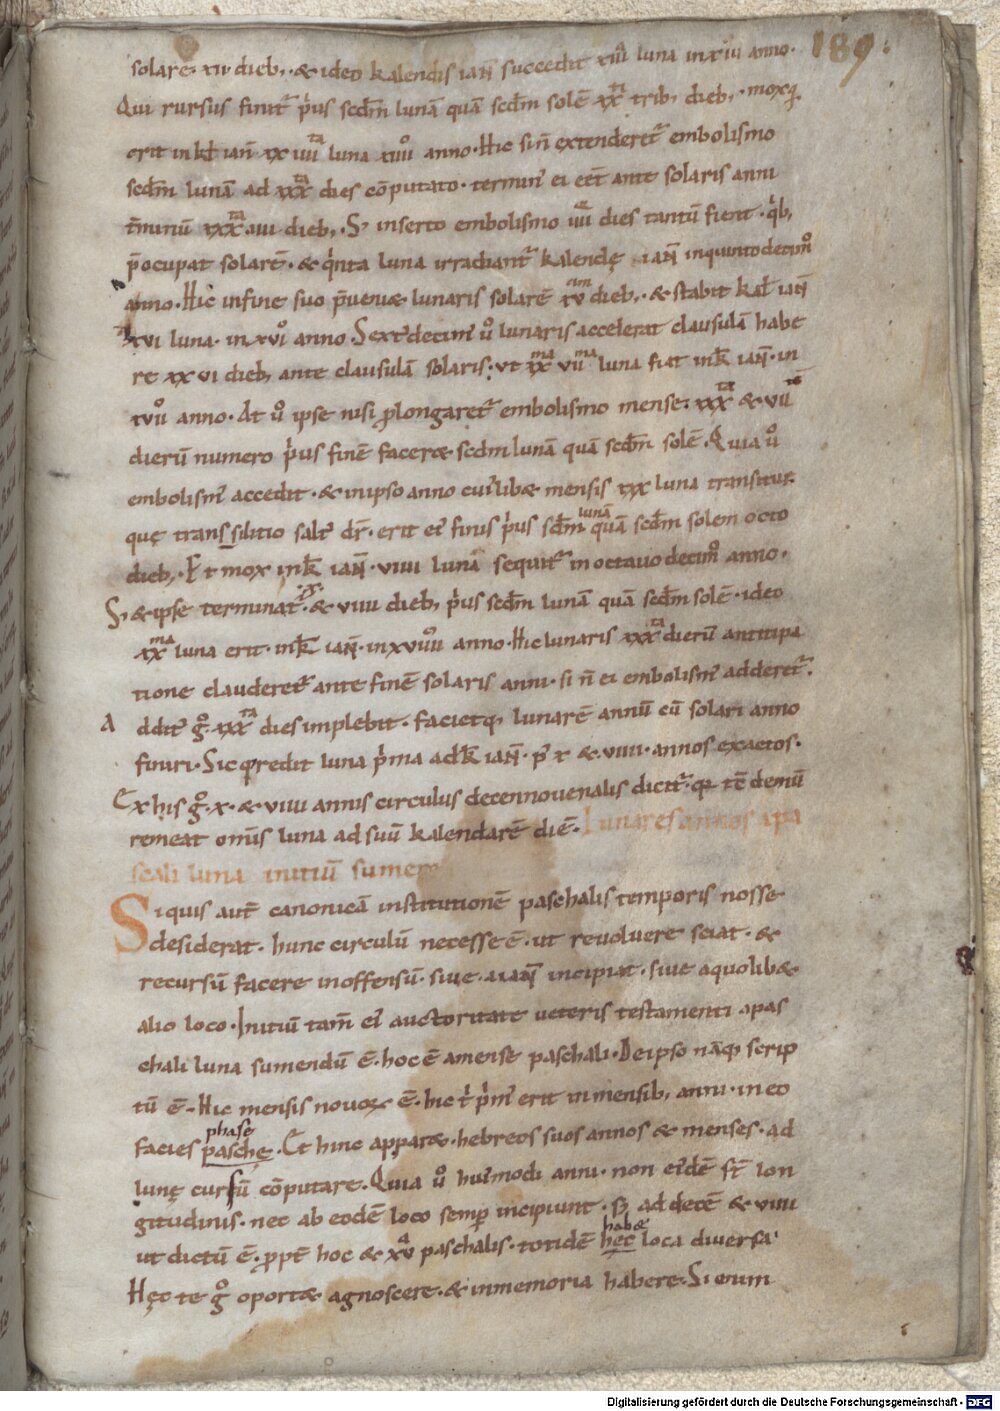 189
solare. xii dieb; & ideo kalendis ian̅ succedit xiii luna in xiii anno.
Qui rursus finit̅ p̍us scd̅m lunā quā scd̅m solē xx trib; dieb; moxq;
erit in kł ian̅ xx iiii luna xiiii anno. Hic si n̅ extenderet̅ embolismo
scd̅m lunā ad xxx dies cōputato. termin' ei eēt ante solaris anni
t̅minū xxx iiii dieb; S; inserto embolismo iiii dies tantū fient. q̍b;
p̅ocupat solarē. & q̍nta luna irradiant̅ kalendę ian̅ in quintodecimo
anno. Hic in fine suo p̅uenit lunaris solarē xv dieb; & stabit kał ian̅
xvi luna. in xvi anno. Sextedecim' ů lunaris accelerat clausulā habe
re xx vi dieb; ante clausulā solaris. ut xx vii luna fiat in k̅ ian̅. in
xvii anno. At ů ipse nisi plongaret̅ embolismo mense. xxx & vii
dierū numero p̍us finē faceret scdm lunā quā scd̅m solē. Quia ů
embolism' accedit. & in ipso anno cui'libet mensis xxx luna transitur
quę transsilitio salt' dr̅. erit ei' finis p̍us scd̅m lunā quā scd̅m solem octo
dieb; Et mox in k̅ ian̅. viiii luna sequit̅ in octauodecimo anno.
S; & ipse terminat̅. & viiii dieb; p̍us scd̅m lunā quā scd̅m solē. ideo
xx luna erit. in k̅ ian̅. in xviiii anno. Hic lunaris xxx dierū anticipa
tione clauderet̅ ante finē solaris anni. si n̅ ei embolism' adderet̅.
A ddit' g̊ xxx dies implebit. facietq; lunarē annū cū solari anno
finiri. Sic q̍redit luna p̍ma ad k̅ ian̅. p' x & viiii. annos exactos.
Ex his g̊. x. & viiii annis circulus decennouenalis dicit̅. q; tē demū
remeat om̅is luna ad suū kalendarē diē. Lunares annos a pa
scali luna initiū sumere
Siquis aut̅ canonicā institutionē paschalis temporis nosse
desiderat. hunc circulū necesse ē. ut reuoluere sciat. &
recursū facere inoffensū. siue a ian̅ incipiat. siue a quolibet
alio loco. Initiū tam̅ ei' auctoritate ueteris testamenti a pas
chali luna sumendū ē. hoc ē a mense paschali. De ipso nāq; scrip
tū ē. Hic mensis nouorꝫ ē. hic t̍ p̍m' erit in mensib; anni. in eo
facies phase pasche. Et hinc apparet. hebreos suos annos & menses. ad
lunę cursū cōputare. Quia ů hui'modi anni. non ei'dē st̅ lon
gitudinis. nec ab eodē loco semp incipiunt. s; ad decē & viiii
ut dictū ē. ppt̅ hoc & xv paschalis. totidē habet hęc loca diuersa
Hęc te g̊ oportet agnoscere. & in memoria habere. Si enim
Digitalisierung gefördert durch die Deutsche Forschungsgemeinschaft - DFG